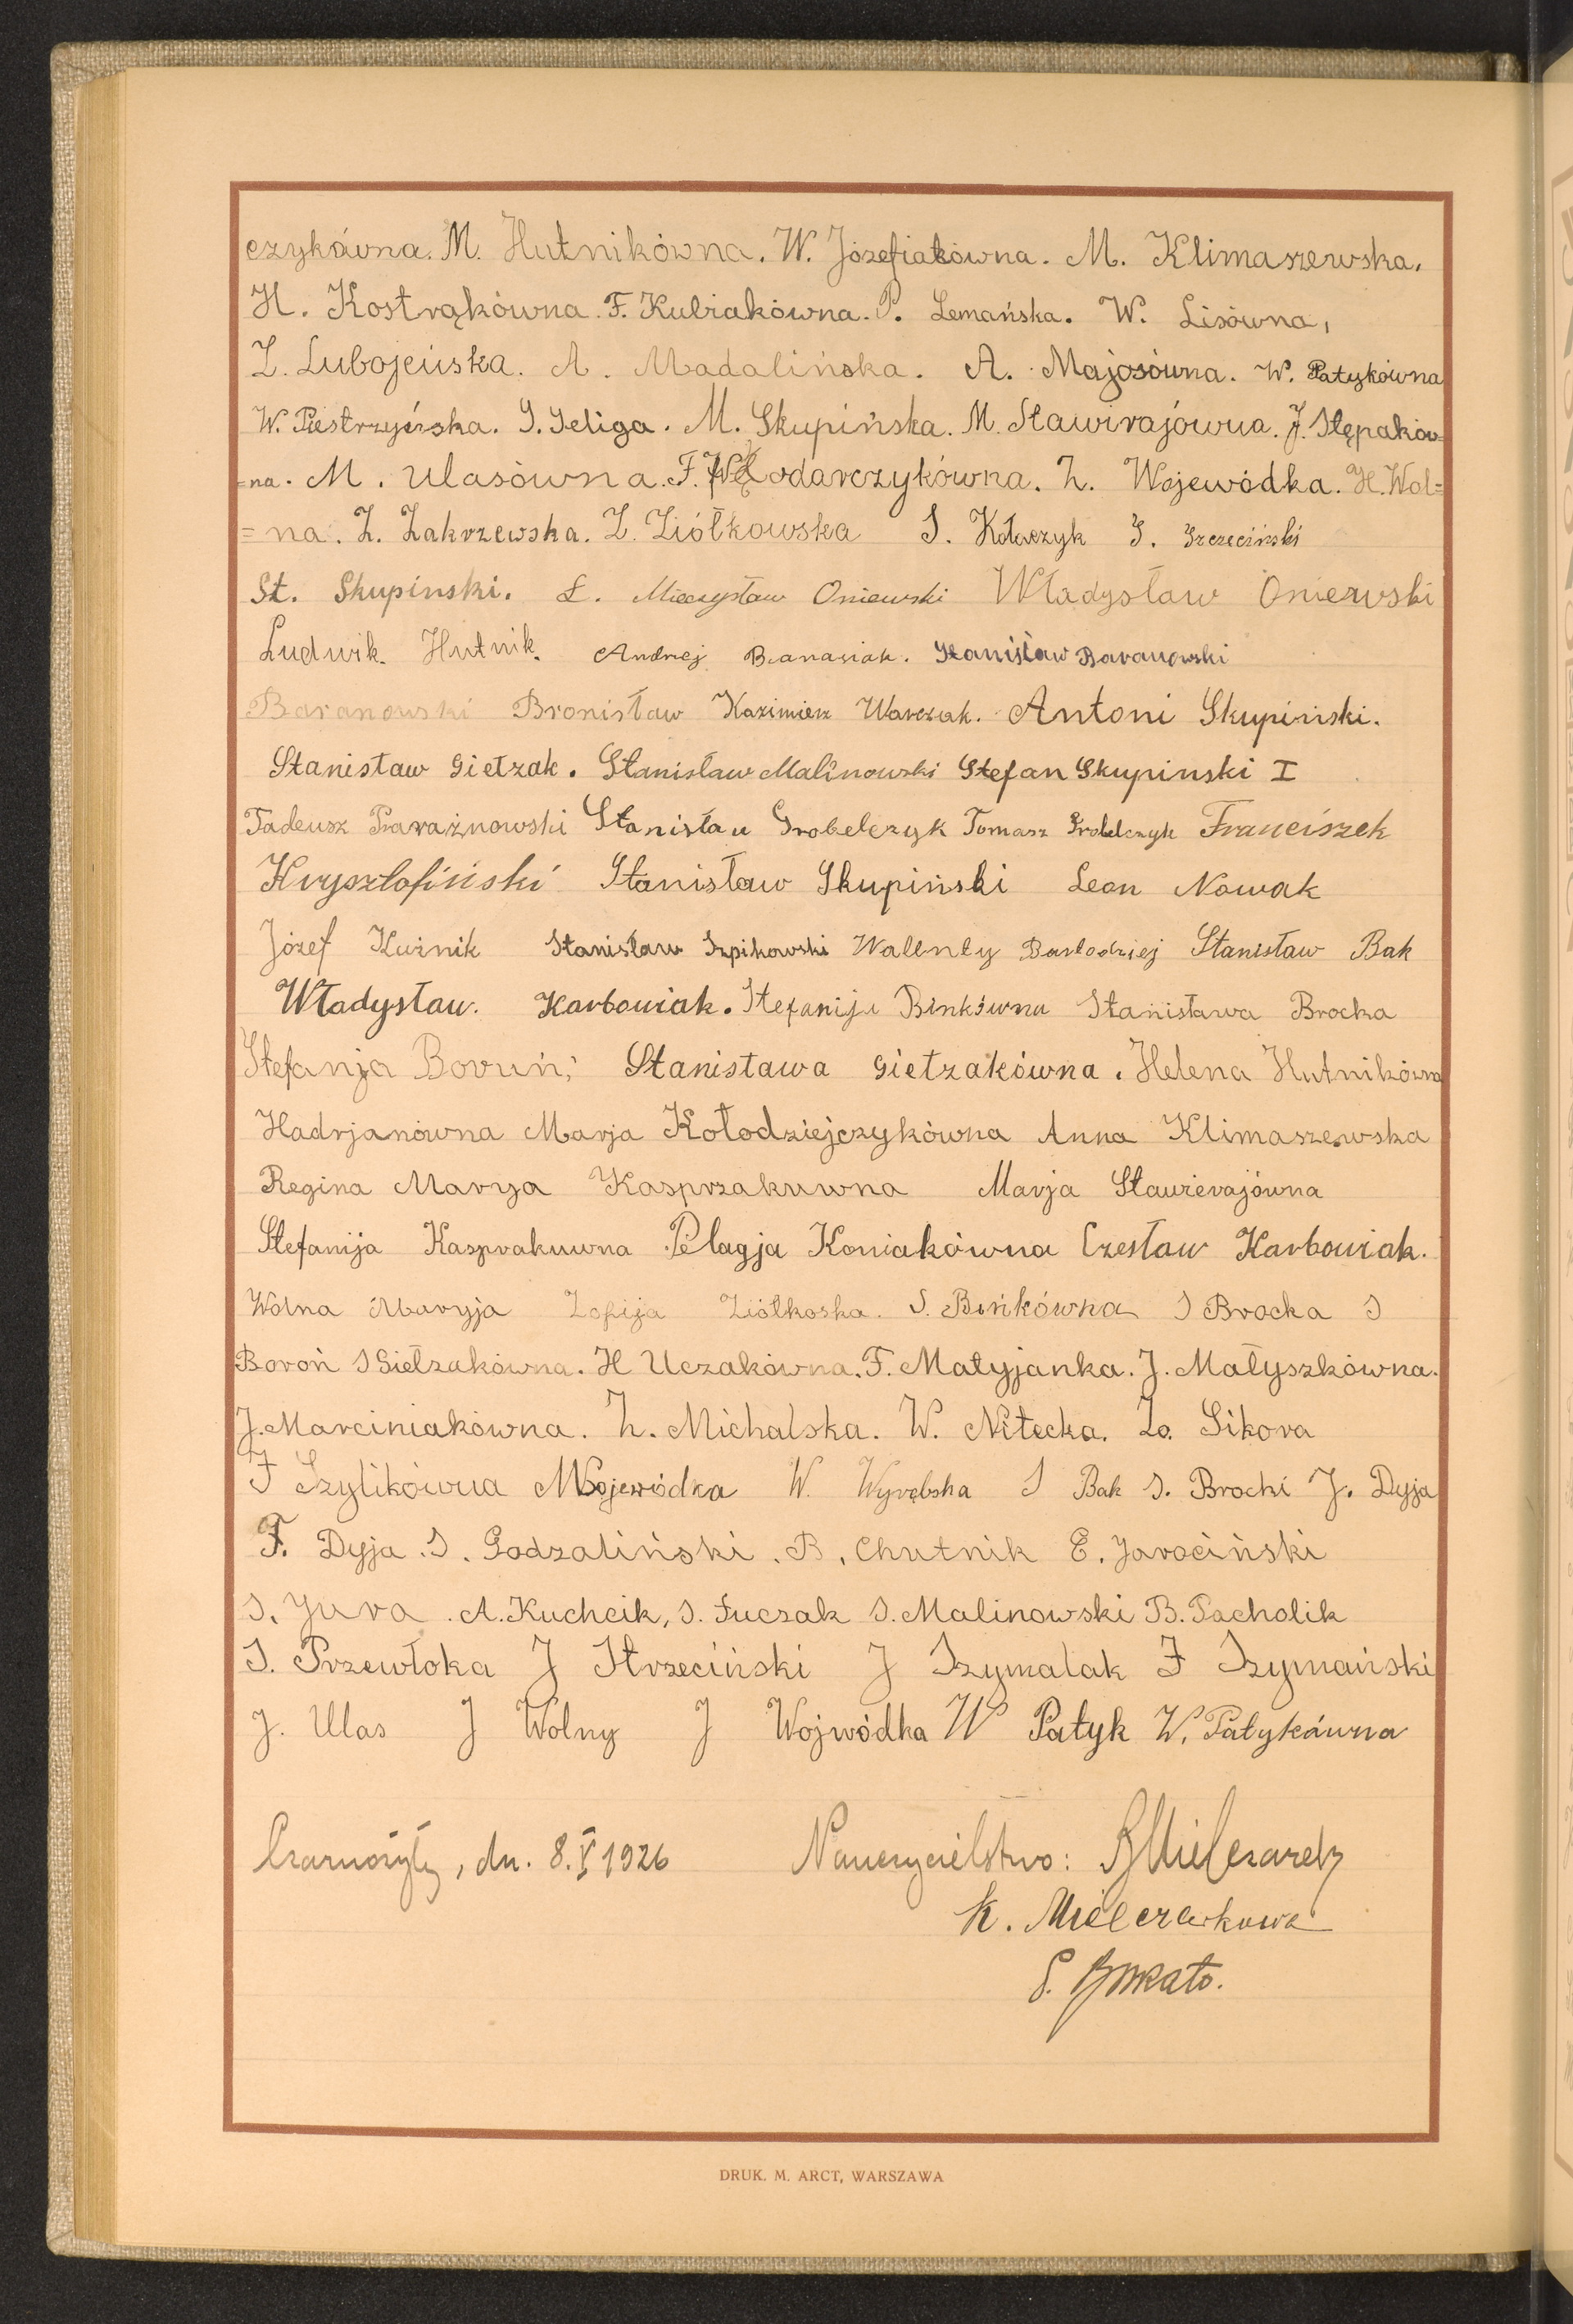 czykówna. M. Hutnikówna. W. Józefiakówna. M. Klimaszewska.
H. Kostrąkówna. F. Kubiakówna. P. Lemańska. W. Lisówna,
Z. Lubojeńska. A. Madalińska. A. Majosówna. W. Patykówna
W. Piestrzyńska. S. Seliga. M. Skupińska. M. Sławirajówna. J. Stępaków=
=na. M. Ulasówna. F. Włodarczykówna. Z. Wojewódka. H. Wol=
=na. Z. Zakrzewska. Z. Ziółkowska S. Kołaczyk S. Szczeciński
St. Skupinski. Ł. Mieczysław Oniewski Władysław Oniewski
Ludwik. Hutnik. Andrzej Banasiak. Stanisław Baranowski
Baranowski Bronisław Kazimierz Warczak. Antoni Skupiński.
Stanisław Giełzak. Stanisław Malinowski Stefan Skupinski I
Tadeusz Praważnowski Stanisław Grobelczyk Tomasz Grobelczyk Franciszek
Krysztofiński Stanisław Skupiński Leon Nowak
Józef Kuźnik Stanisław Szpikowski Walenty Bartodziej Stanisław Bak
Władysław. Karbowiak. Stefanija Binkówna Stanisława Brocka
Stefanja Boruń; Stanisława Giełzakówna. Helena Hutnikówna
Hadrjanówna Marja Kołodziejczykówna Anna Klimaszewska
Regina Marya Kasprzakuwna Marja Sławierajówna
Stefanija Kasprakuwna Pelagja Koniakówna Czesław Karbowiak.
Wolna Maryja Zofija Ziółkoska. S. Bińkówna S Brocka S
Boroń S Giełzakówna. H Uczakówna. F. Matyjanka. J. Małyszkówna.
J. Marciniakówna. Z. Michalska. W. Nitecka. Zo. Sikora
F Szylikówna M Wojewódka W. Wyrębska S Bak S. Brocki J. Dyja
F. Dyja. S. Godzaliński. B. Chutnik E. Jarociński
S. Jura. A. Kuchcik, S. Łuczak S. Malinowski B. Pacholik
S. Przewłoka J Strzeciński J Szymalak F Szymański
J. Ulas J Wolny J Wojwódka W Patyk W. Patykówna
Czarnożyły, dn. 8.V 1926 Nauczycielstwo: B Mielczarek
K. Mielczarkowa
DRUK. M. ARCT, WARSZAWA